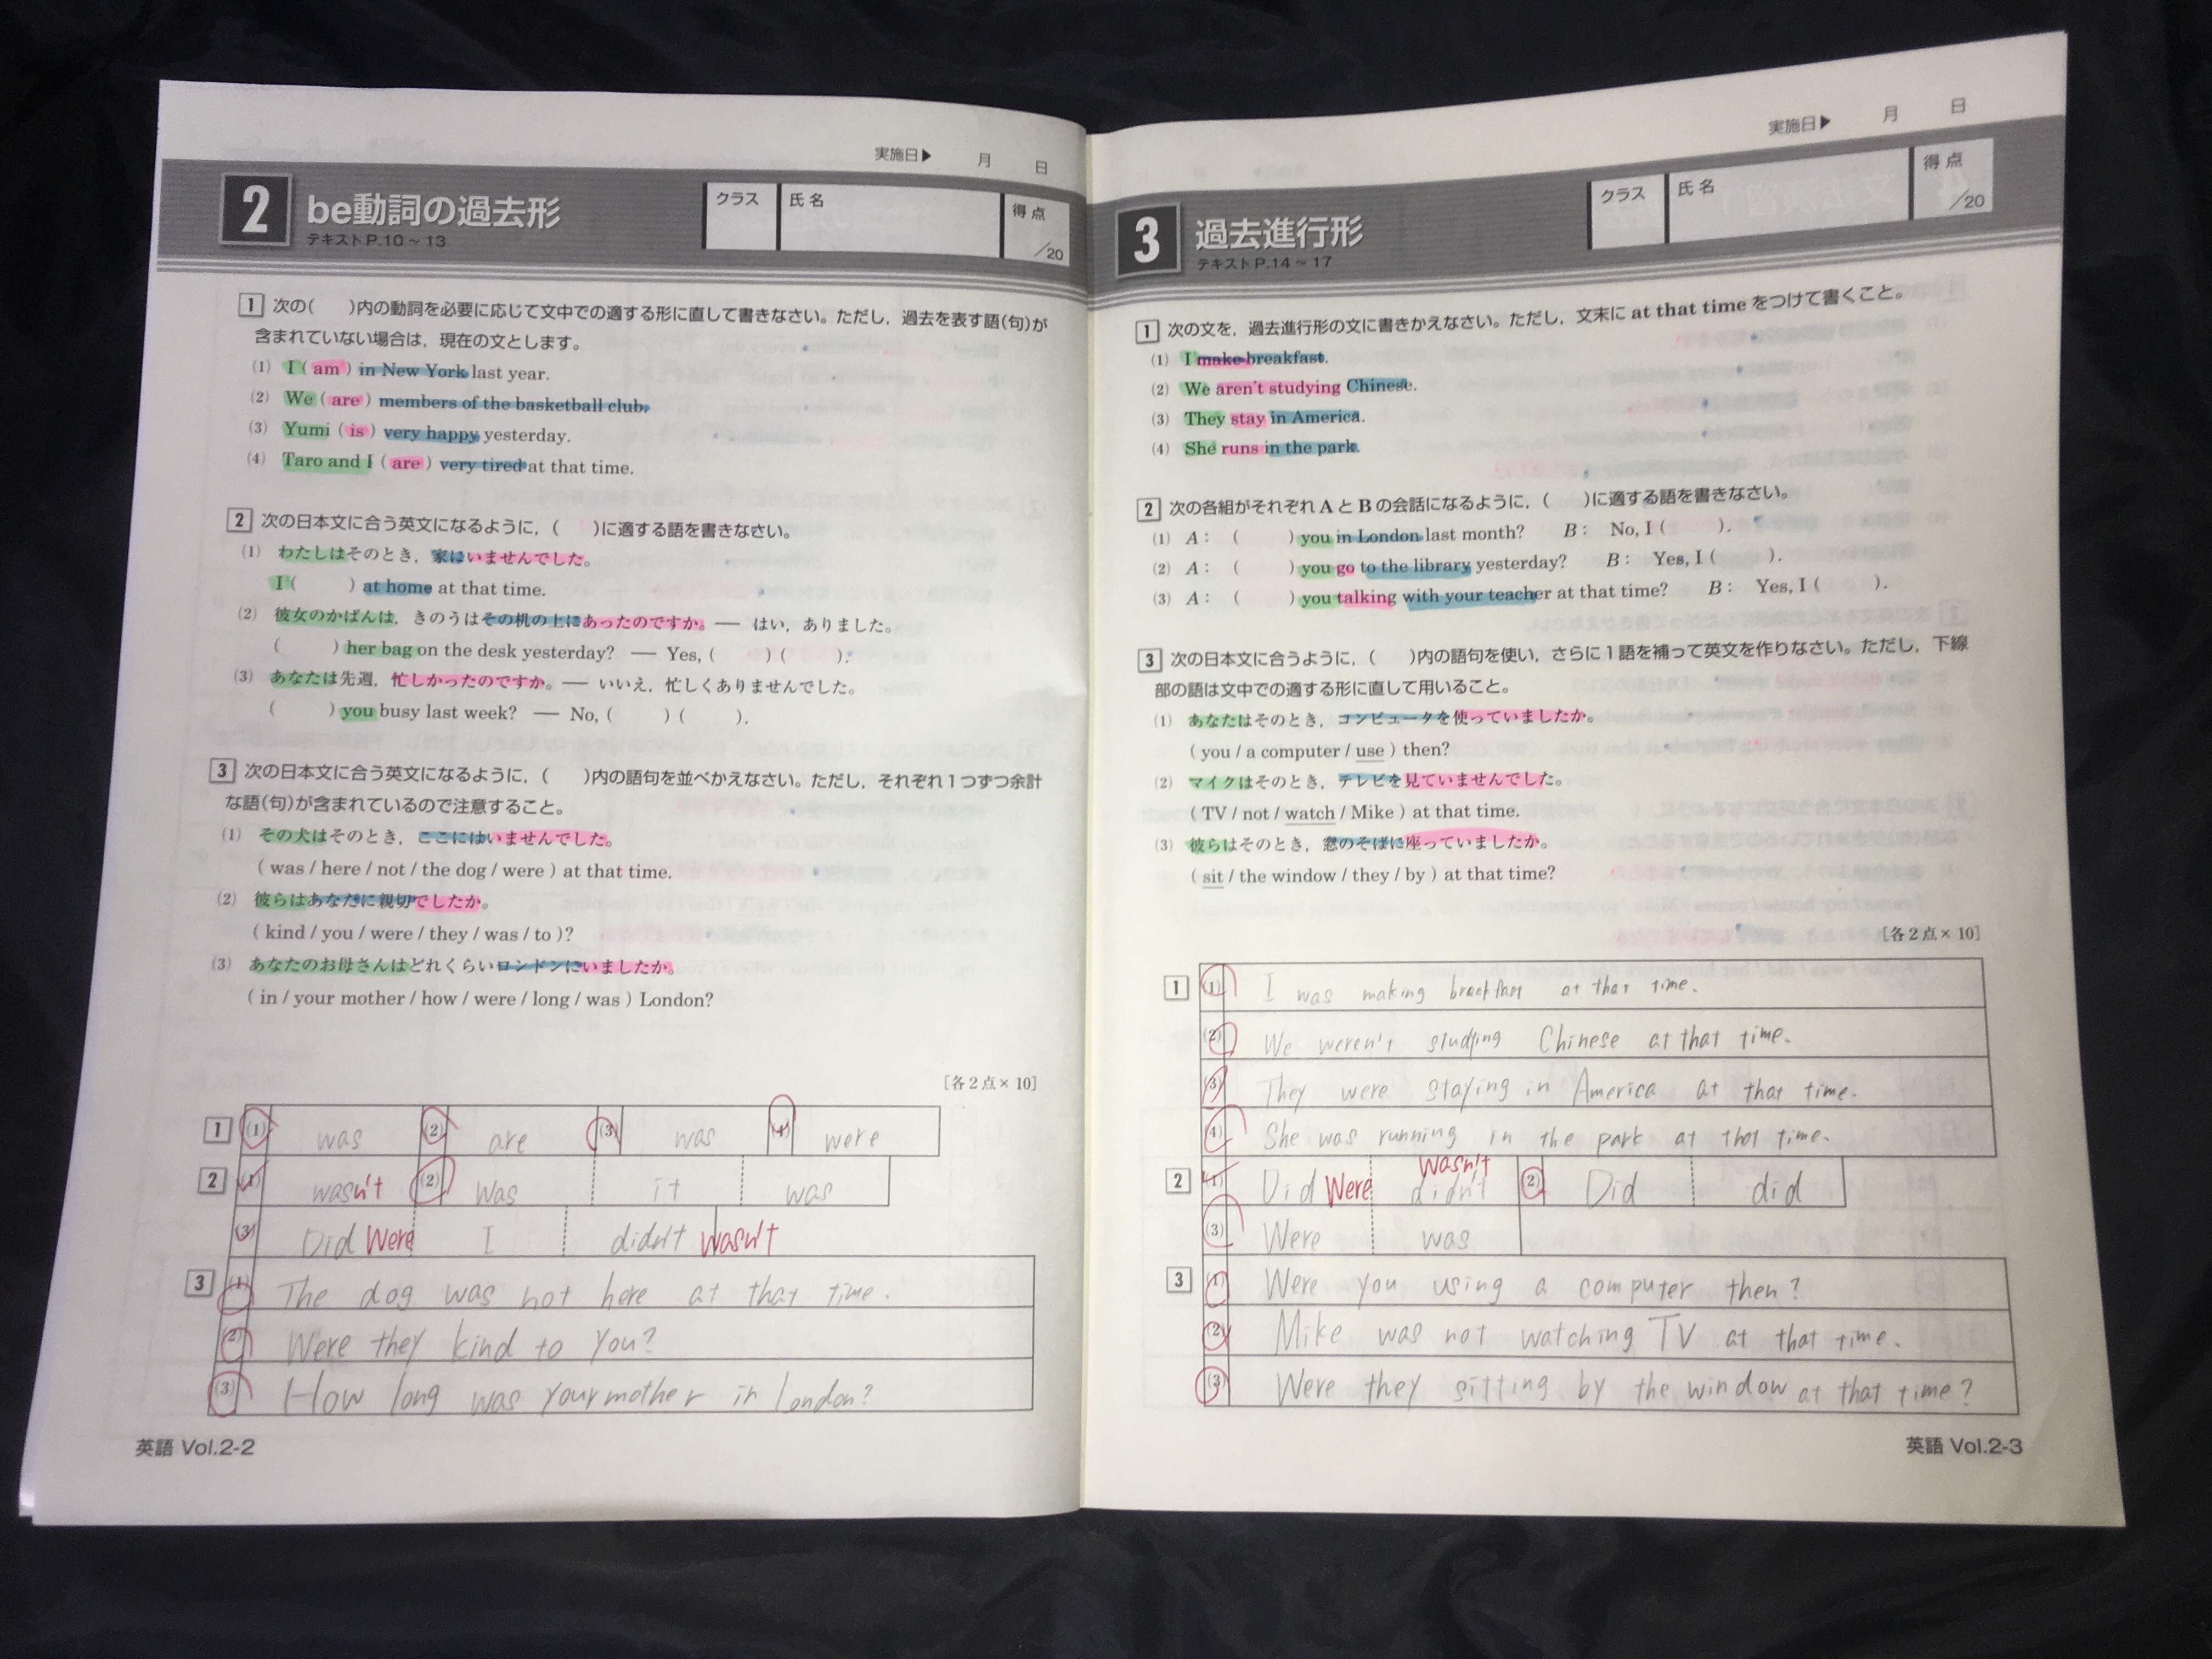 実施日▶ 月 日
2 be動詞の過去形
テキストP.10～13
クラス 氏名 得点 ／20
1 次の( )内の動詞を必要に応じて文中での適する形に直して書きなさい。ただし，過去を表す語(句)が
含まれていない場合は，現在の文とします。
(1) I ( am ) in New York last year.
(2) We ( are ) members of the basketball club.
(3) Yumi ( is ) very happy yesterday.
(4) Taro and I ( are ) very tired at that time.
2 次の日本文に合う英文になるように，( )に適する語を書きなさい。
(1) わたしはそのとき，家にいませんでした。
I ( ) at home at that time.
(2) 彼女のかばんは，きのうはその机の上にあったのですか。― はい，ありました。
( ) her bag on the desk yesterday? ― Yes, ( ) ( ).
(3) あなたは先週，忙しかったのですか。― いいえ，忙しくありませんでした。
( ) you busy last week? ― No, ( ) ( ).
3 次の日本文に合う英文になるように，( )内の語句を並べかえなさい。ただし，それぞれ1つずつ余計
な語(句)が含まれているので注意すること。
(1) その犬はそのとき，ここにはいませんでした。
( was / here / not / the dog / were ) at that time.
(2) 彼らはあなたに親切でしたか。
( kind / you / were / they / was / to )?
(3) あなたのお母さんはどれくらいロンドンにいましたか。
( in / your mother / how / were / long / was ) London?
[各2点×10]
1 (1) was (2) are (3) was (4) were
2 (1) wasn't (2) Was it was
(3) Did Were I didn't wasn't
3 (1) The dog was not here at that time.
(2) Were they kind to you?
(3) How long was your mother in London?
英語 Vol.2-2
実施日▶ 月 日
3 過去進行形
テキストP.14～17
クラス 氏名 得点 ／20
1 次の文を，過去進行形の文に書きかえなさい。ただし，文末に at that time をつけて書くこと。
(1) I make breakfast.
(2) We aren't studying Chinese.
(3) They stay in America.
(4) She runs in the park.
2 次の各組がそれぞれ A と B の会話になるように，( )に適する語を書きなさい。
(1) A : ( ) you in London last month? B : No, I ( ).
(2) A : ( ) you go to the library yesterday? B : Yes, I ( ).
(3) A : ( ) you talking with your teacher at that time? B : Yes, I ( ).
3 次の日本文に合うように，( )内の語句を使い，さらに1語を補って英文を作りなさい。ただし，下線
部の語は文中での適する形に直して用いること。
(1) あなたはそのとき，コンピュータを使っていましたか。
( you / a computer / use ) then?
(2) マイクはそのとき，テレビを見ていませんでした。
( TV / not / watch / Mike ) at that time.
(3) 彼らはそのとき，窓のそばに座っていましたか。
( sit / the window / they / by ) at that time?
[各2点×10]
1 (1) I was making breakfast at that time.
(2) We weren't studying Chinese at that time.
(3) They were staying in America at that time.
(4) She was running in the park at that time.
2 (1) Did Were didn't wasn't (2) Did did
(3) Were was
3 (1) Were you using a computer then?
(2) Mike was not watching TV at that time.
(3) Were they sitting by the window at that time?
英語 Vol.2-3